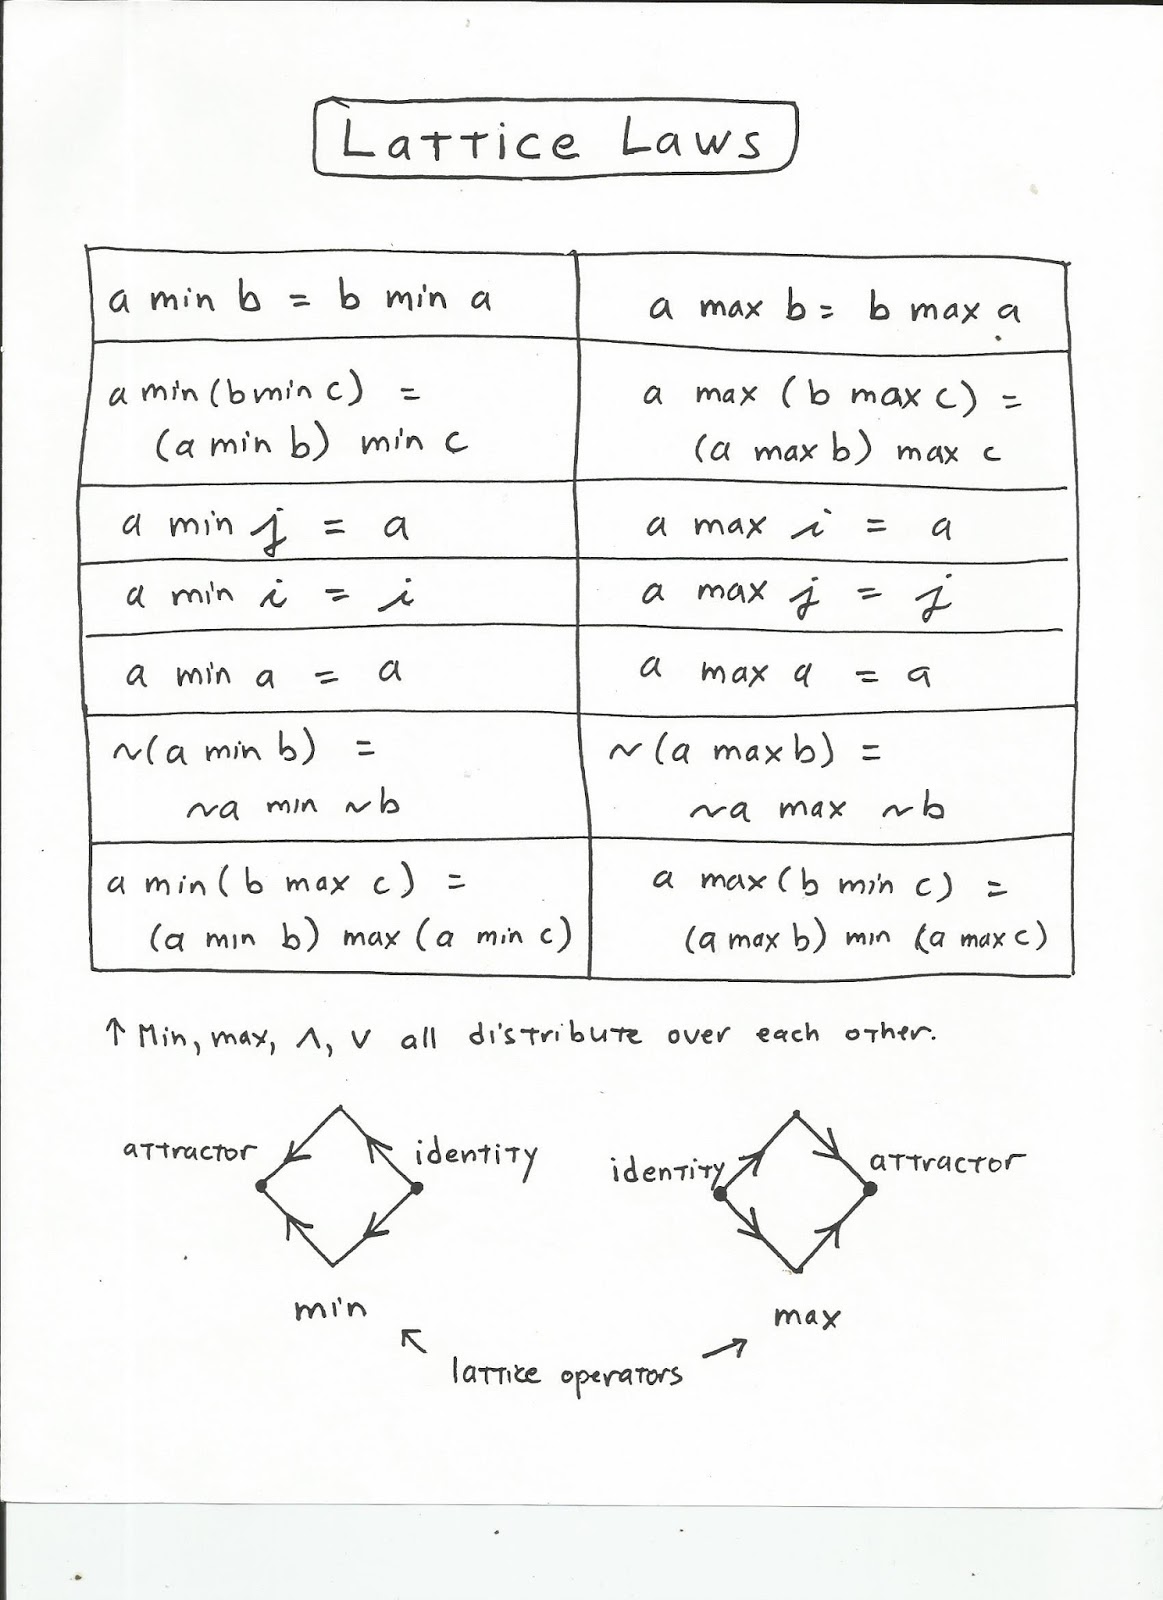 Lattice Laws
a min b = b min a
a max b = b max a
a min (b min c) =
(a min b) min c
a max (b max c) =
(a max b) max c
a min j = a
a max i = a
a min i = i
a max j = j
a min a = a
a max a = a
~(a min b) =
~a min ~b
~(a max b) =
~a max ~b
a min (b max c) =
(a min b) max (a min c)
a max (b min c) =
(a max b) min (a max c)
↑ Min, max, ∧, ∨ all distribute over each other.
attractor
identity
min
identity
attractor
max
↖ ↗
lattice operators